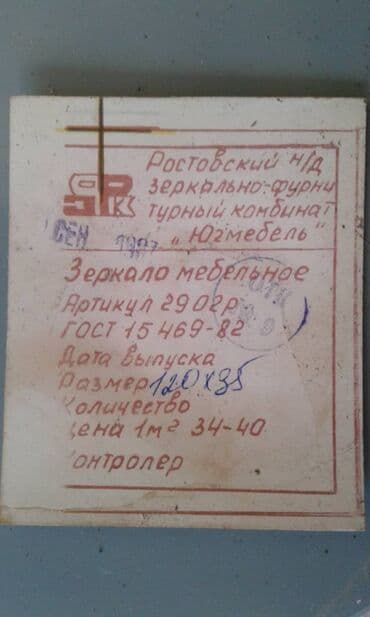 Ростовский н/д
зеркально-фурни
турный комбинат
„Югмебель"
СЕН
Зеркало мебельное
Артикул 2902р
ОТК
9
ГОСТ 15469-82
Дата выпуска
Размер 120х35
Количество
цена 1м² 34-40
контролер